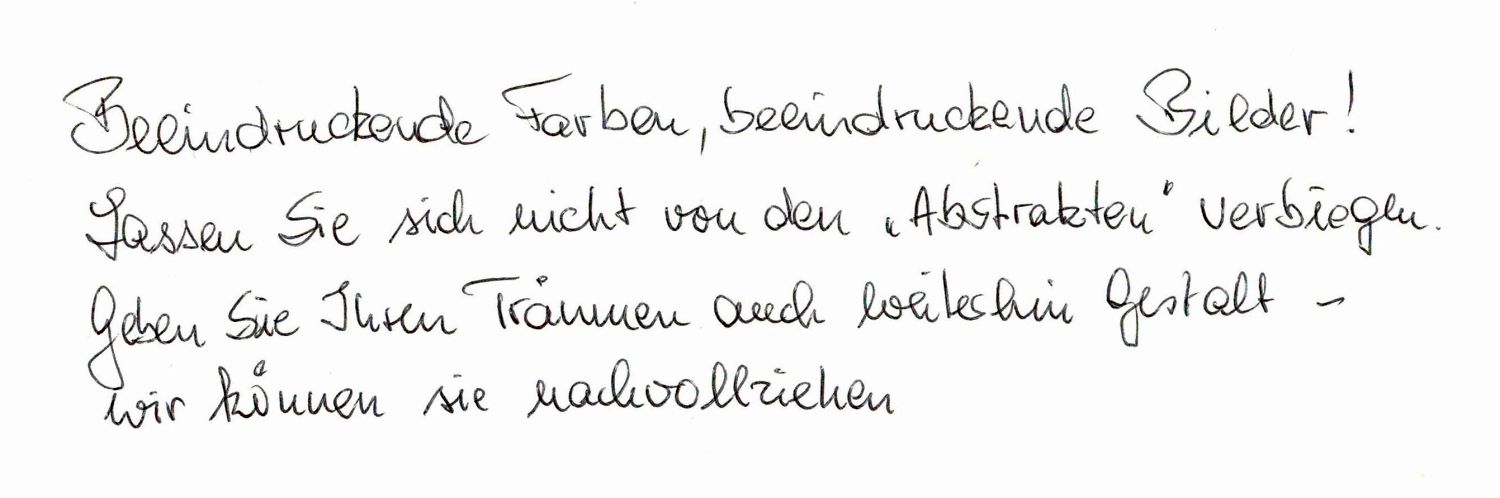 Beeindruckende Farben, beeindruckende Bilder!
Lassen Sie sich nicht von den „Abstrakten“ verbiegen.
Geben Sie Ihren Träumen auch weiterhin Gestalt –
wir können sie nachvollziehen